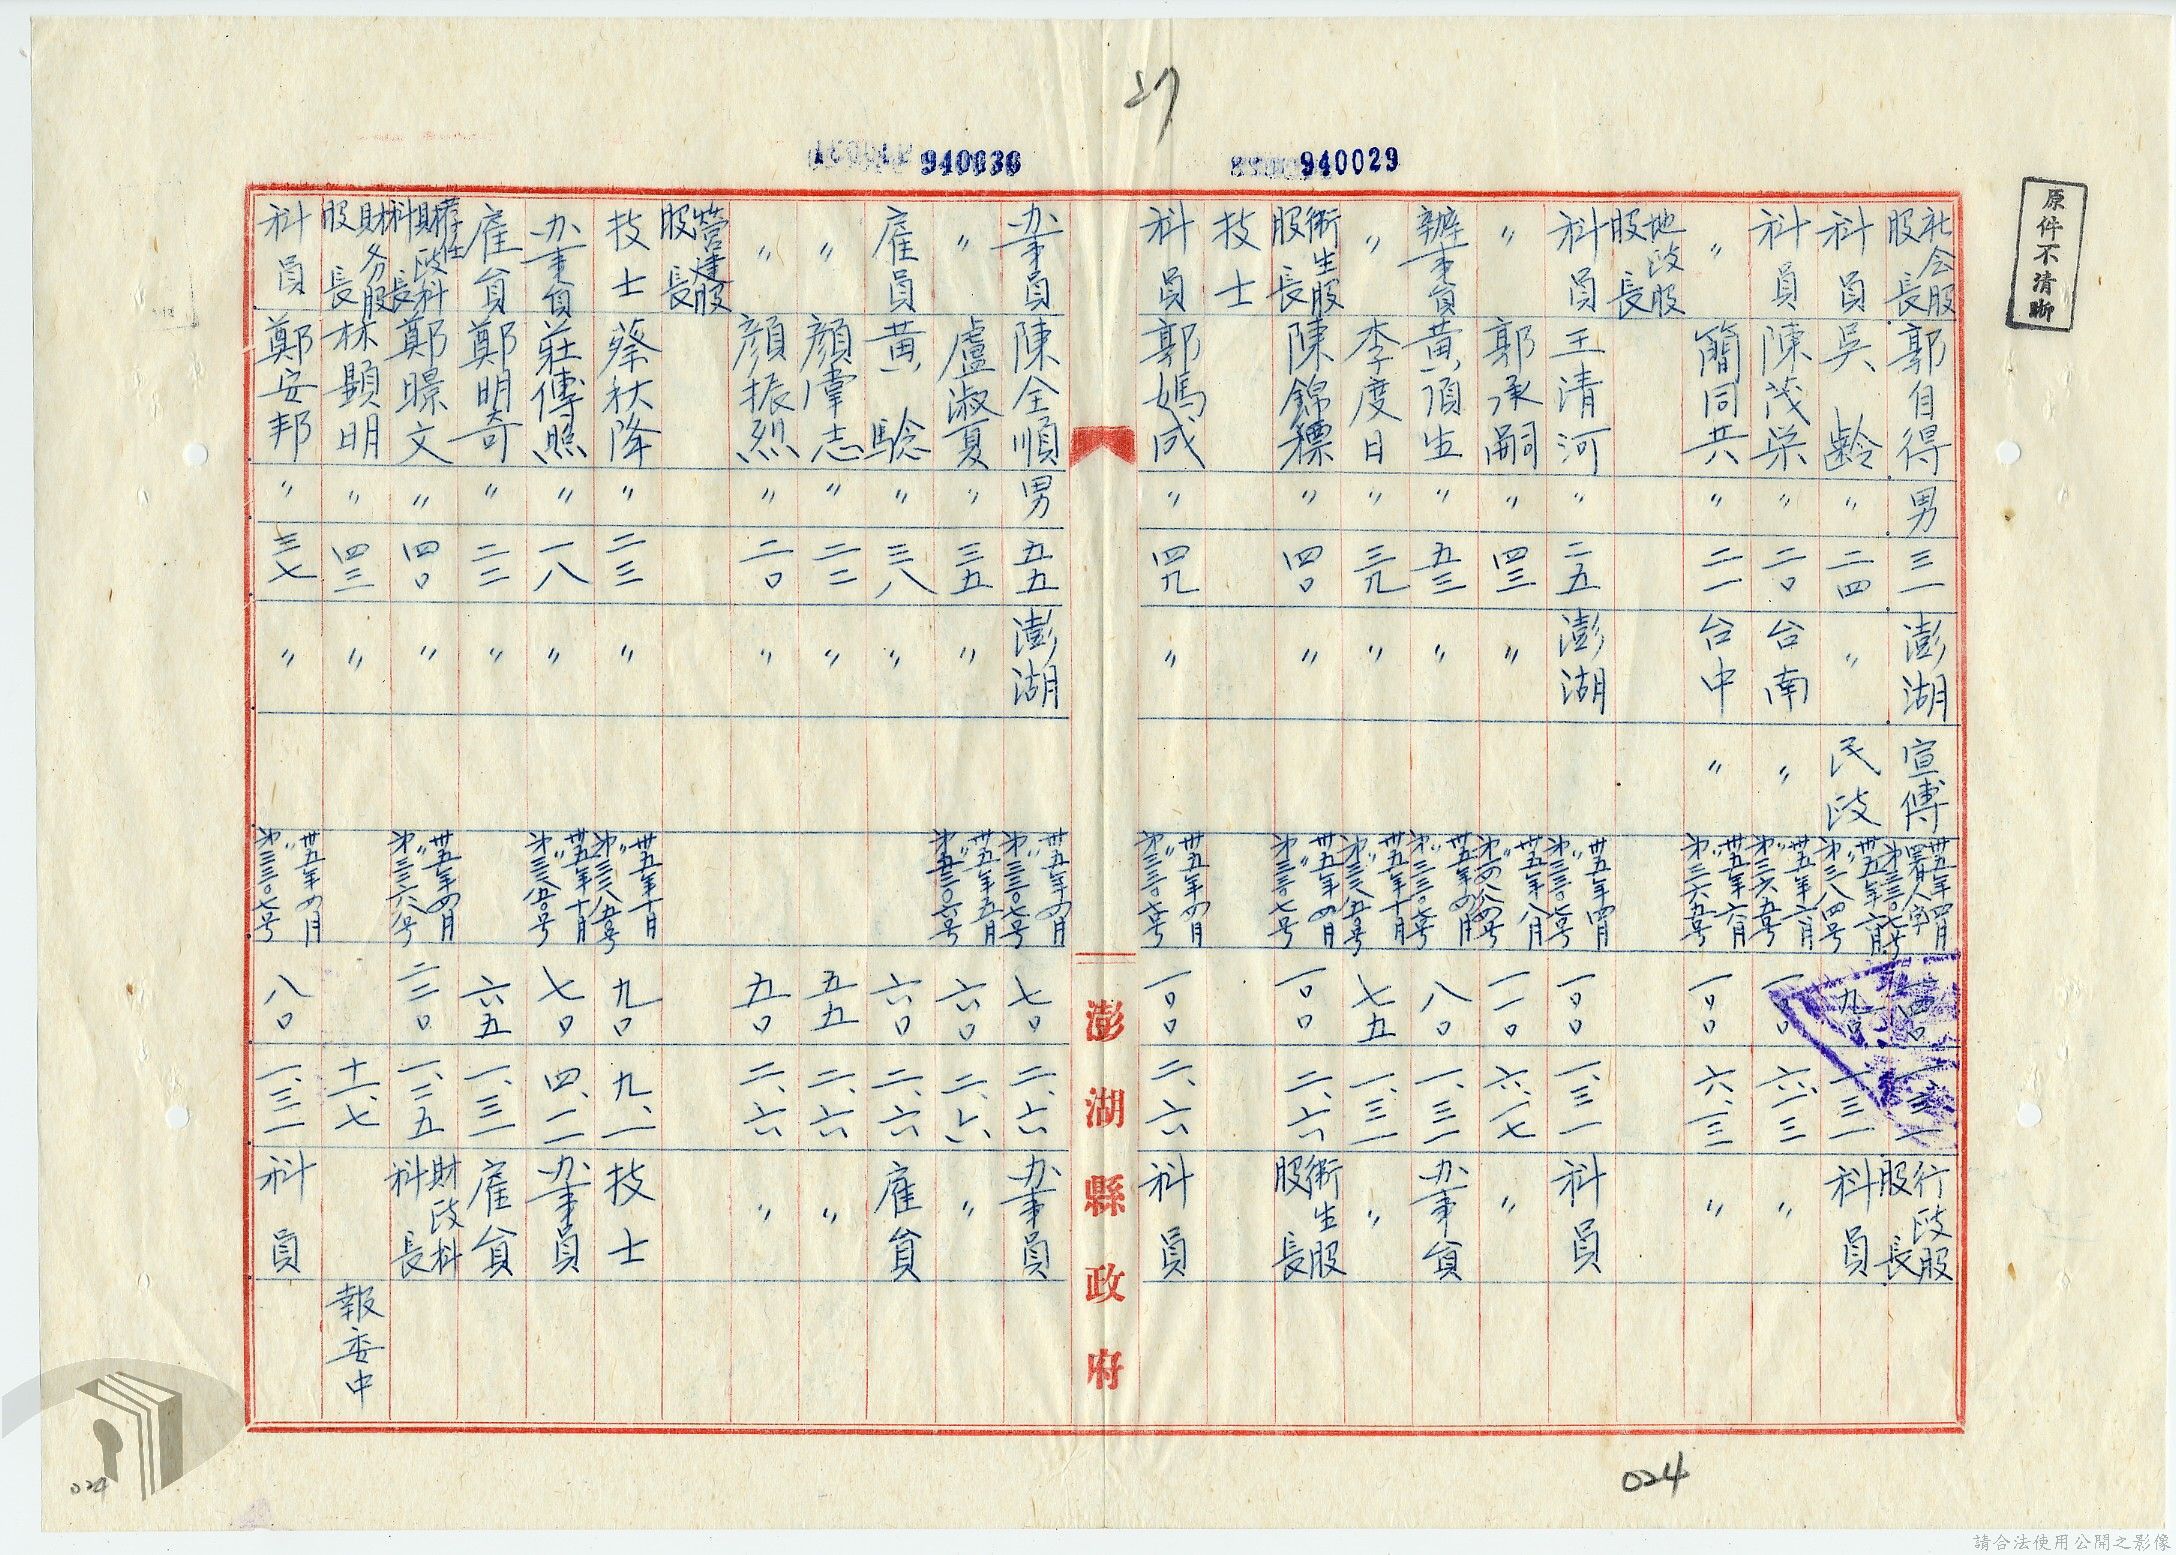 27
940029
940030
原件不清晰
社会股股長 郭自得 男 三一 澎湖 宣傳 卅五年四月署人字第三三〇七号 一四〇 一.三一 行政股股長
科員 吳齡 〃 二四 〃 民政 卅五年六月〃第三三八四号 九〇 一.三一 科員
科員 陳茂荣 〃 二〇 台南 〃 卅五年六月〃第三三六五号 一〇〇 六.三 〃
〃 簡同共 〃 二一 台中 〃 卅五年六月〃第三三六五号 一〇〇 六.三 〃
地政股股長
科員 王清河 〃 二五 澎湖 卅五年四月〃第三三〇七号 一〇〇 一.三一 科員
〃 郭承嗣 〃 四三 〃 卅五年八月 一一〇 六.一七 〃
辦事員 黃頂生 〃 五三 〃 卅五年四月〃第三三〇七号 八〇 一.三一 办事員
〃 李度日 〃 三九 〃 卅五年十月 七五 一.三一 〃
衛生股股長 陳錦標 〃 四〇 〃 卅五年四月〃第三三〇七号 一〇〇 二.六 衛生股股長
技士
科員 郭媽成 〃 四九 〃 卅五年四月〃第三三〇七号 一〇〇 二.六 科員
澎湖縣政府
办事員 陳全順 男 五五 澎湖 卅五年四月〃第三三〇七号 七〇 二.六 办事員
〃 盧淑夏 〃 三五 〃 卅五年五月 六〇 二.六 〃
雇員 黃騐 〃 三八 〃 六〇 二.六 雇員
〃 顏肇志 〃 二二 〃 五五 二.六 〃
〃 顏振烈 〃 二〇 〃 五〇 二.六 〃
營建股股長
技士 蔡秋降 〃 二三 〃 卅五年十月 九〇 九.一 技士
办事員 莊傳照 〃 一八 〃 卅五年十月 七〇 四.一 办事員
雇員 鄭明奇 〃 二二 〃 六五 一.三一 雇員
財政科科長 鄭暻文 〃 四〇 〃 卅五年四月〃第三三六八号 二二〇 一.二五 財政科科長
財务股股長 林顯明 〃 四三 〃 十一.七 報委中
科員 鄭安邦 〃 三七 〃 卅五年四月〃第三三〇七号 八〇 一.三一 科員
024
024
請合法使用公開之影像